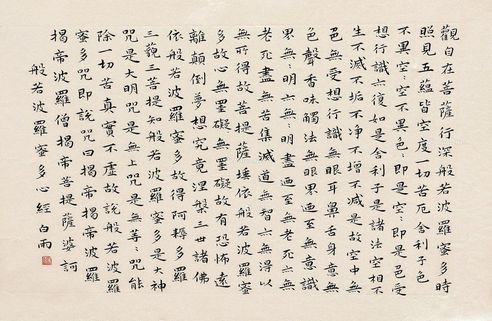 觀自在菩薩行深般若波羅蜜多時
照見五蘊皆空度一切苦厄舍利子色
不異空〻不異色〻即是空〻即是色受
想行識亦復如是舍利子是諸法空相不
生不滅不垢不淨不增不減是故空中無
色無受想行識無眼耳鼻舌身意無
色聲香味觸法無眼界乃至無意識
界無〻明亦無〻明盡乃至無老死亦無
老死盡無苦集滅道無智亦無得以
無所得故菩提薩埵依般若波羅蜜
多故心無罣礙無罣礙故有恐怖遠
離顛倒夢想究竟涅槃三世諸佛
依般若波羅蜜多故得阿耨多羅
三藐三菩提知般若波羅蜜多是大神
咒是大明咒是無上咒是無等〻咒能
除一切苦真實不虛故說般若波羅
蜜多咒即說咒曰揭帝揭帝波羅
揭帝波羅僧揭帝菩提薩婆訶
般若波羅蜜多心經 白雨